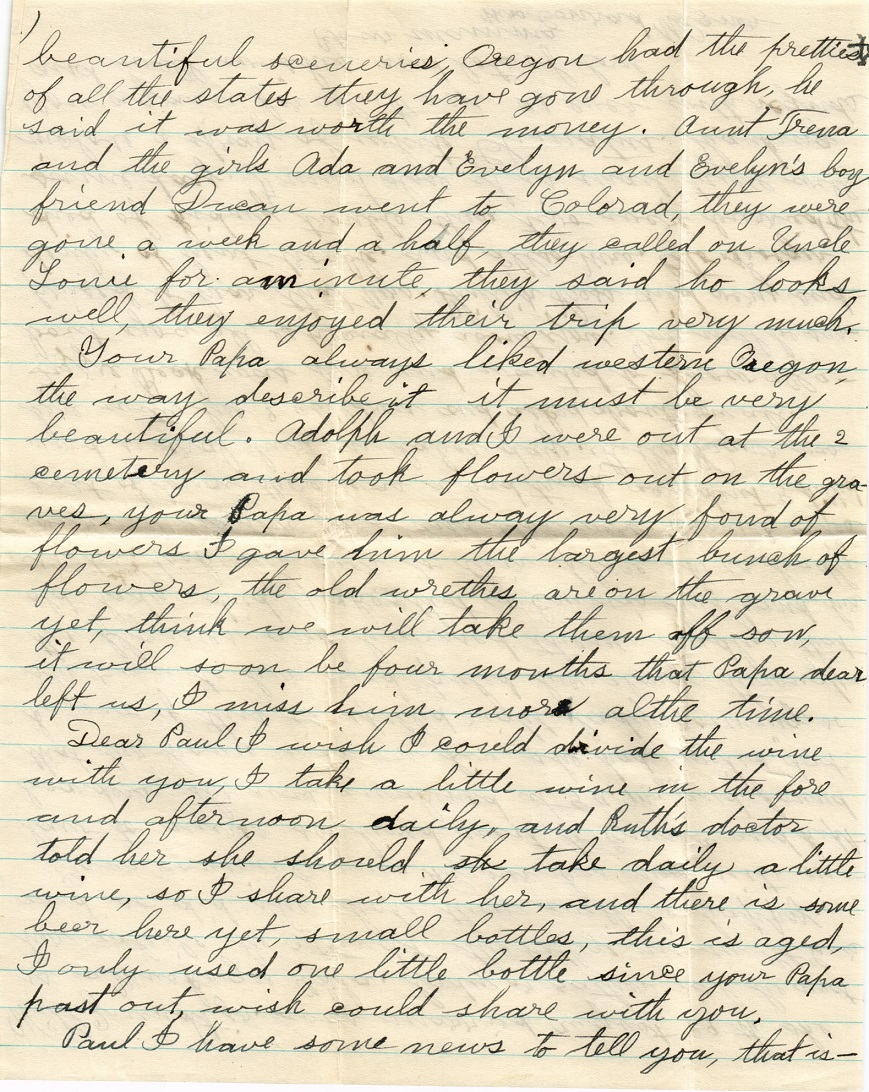 beautiful sceneries, Oregon had the prettiest
of all the states they have gone through, he
said it was worth the money. Aunt Trena
and the girls Ada and Evelyn and Evelyn's boy
friend Ducan went to Colorad, they were
gone a week and a half, they called on Uncle
Louie for a minute, they said ho looks
well, they enjoyed their trip very much.
Your Papa always liked western Oregon,
the way describe it it must be very
beautiful. Adolph and I were out at the 2
cemetery and took flowers out on the gra-
ves, your Papa was alway very fond of
flowers I gave him the largest bunch of
flowers, the old wrethes are on the grave
yet, think we will take them off son,
it will soon be four months that Papa dear
left us, I miss him more althe time.
Dear Paul I wish I could divide the wine
with you, I take a little wine in the fore
and afternoon daily, and Ruth's doctor
told her she should sh take daily a little
wine, so I share with her, and there is some
beer here yet, small bottles, this is aged,
I only used one little bottle since your Papa
past out, wish could share with you.
Paul I have some news to tell you, that is—